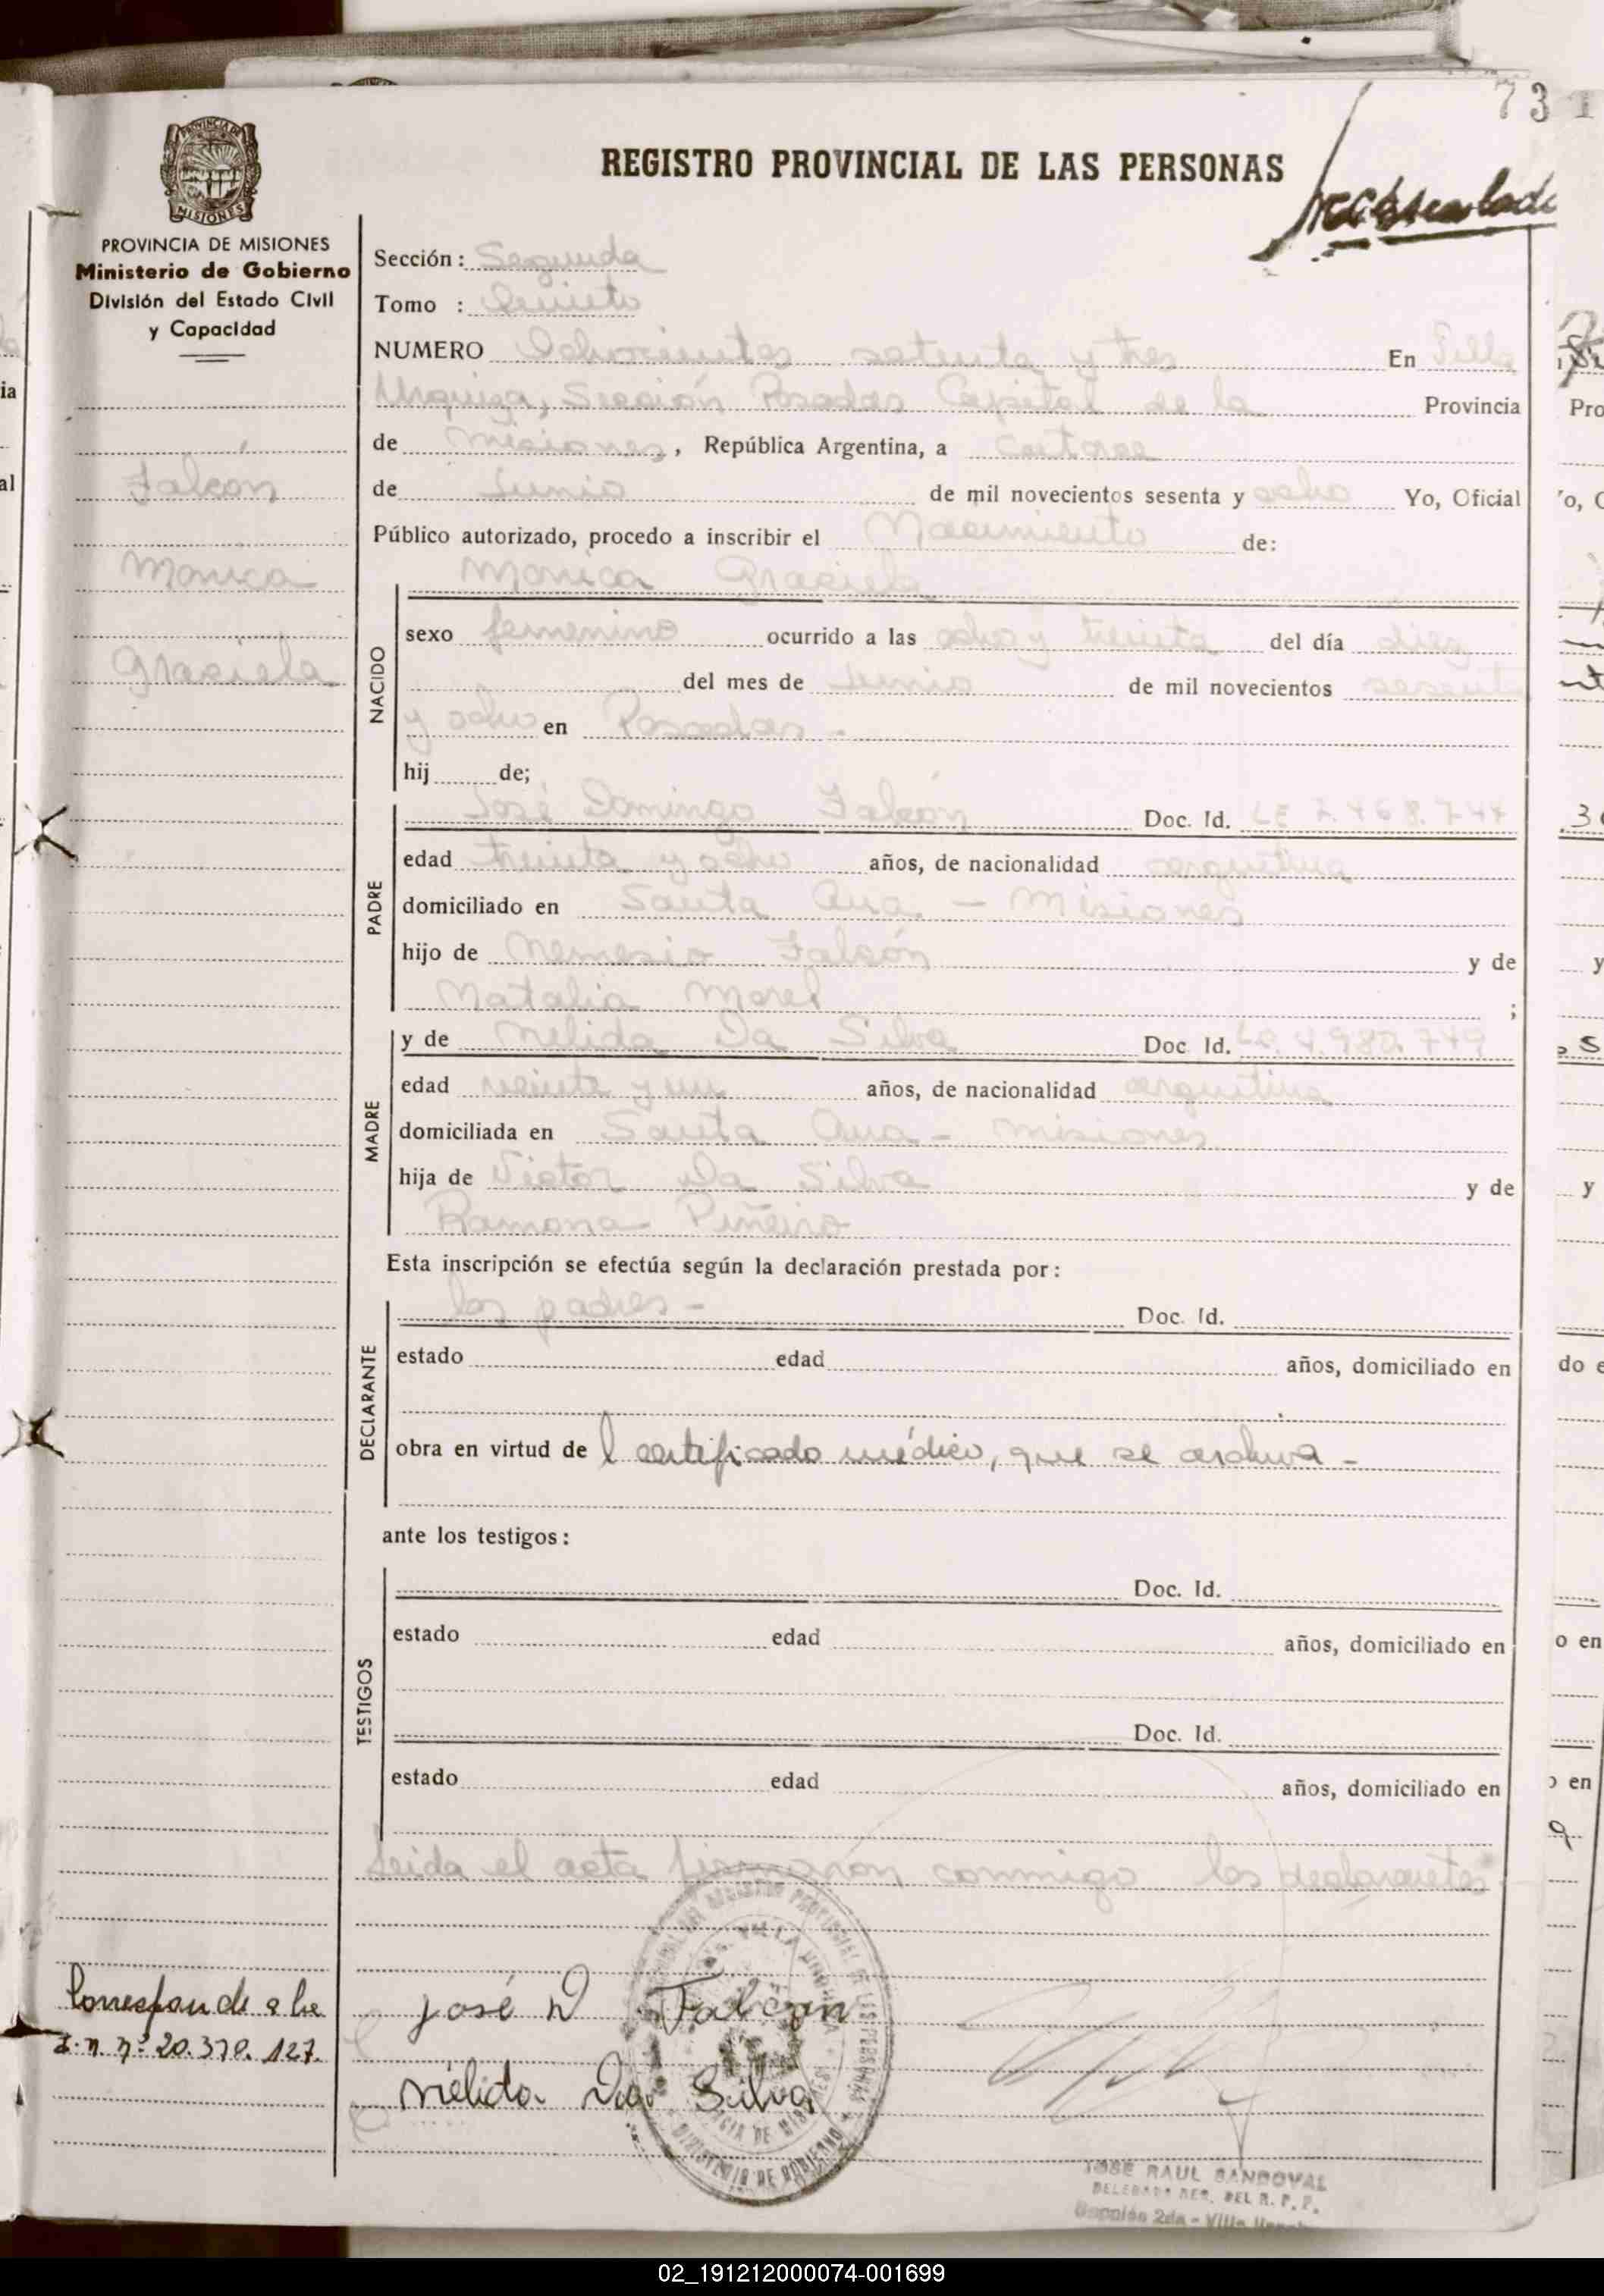 731
REGISTRO PROVINCIAL DE LAS PERSONAS
PROVINCIA DE MISIONES
Ministerio de Gobierno
División del Estado Civil
y Capacidad
Falcón
Monica
Graciela
Sección: Segunda
Tomo :
NUMERO Ochocientos setenta y tres En Villa
Urquiza, Sección Posadas Capital de la Provincia
de Misiones, República Argentina, a catorce
de Junio de mil novecientos sesenta y ocho Yo, Oficial
Público autorizado, procedo a inscribir el Nacimiento de:
Monica Graciela
NACIDO
sexo femenino ocurrido a las ocho y treinta del día diez
del mes de Junio de mil novecientos sesenta
y ocho en Posadas.-
hij de;
PADRE
José Domingo Falcón Doc. Id. LE 7.468.744
edad treinta y ocho años, de nacionalidad argentina
domiciliado en Santa Ana - Misiones
hijo de Nemesio Falcón y de
Natalia Morel ;
MADRE
y de Nelida Da Silva Doc Id. 4.980.749
edad veinte y un años, de nacionalidad argentina
domiciliada en Santa Ana - Misiones
hija de Victor Da Silva y de
Ramona Piñeiro
Esta inscripción se efectúa según la declaración prestada por:
DECLARANTE
los padres - Doc. Id.
estado edad años, domiciliado en
obra en virtud de l certificado médico, que se archiva -
ante los testigos:
TESTIGOS
Doc. Id.
estado edad años, domiciliado en
Doc. Id.
estado edad años, domiciliado en
Leida el acta firmaron conmigo los declarantes
Corresponde a la
L.N. nº 20.370.127.
José D Falcon
Nélida Da Silva
JOSE RAUL SANDOVAL
DELEGADO DEL R. P. P.
Sección 2da - Villa
02_191212000074-001699